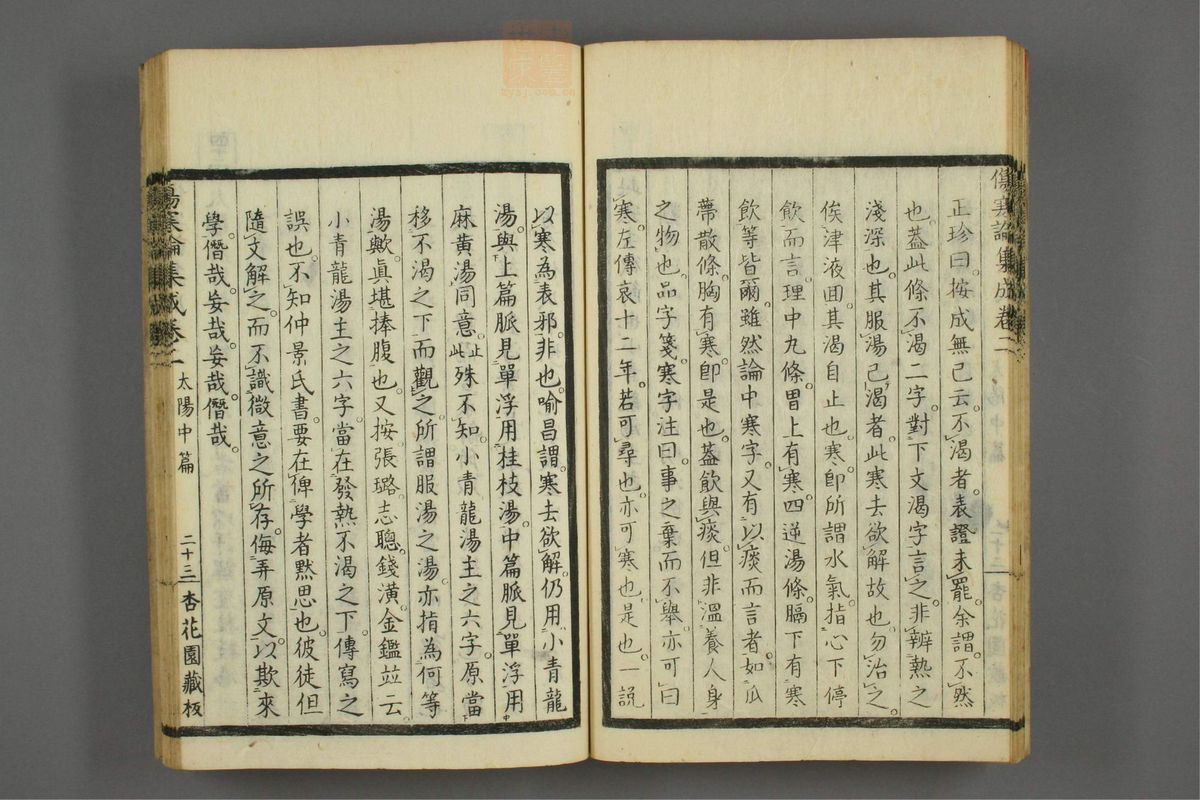 傷寒論集成卷二
正珍曰。按成無己云。不渴者。表證未罷。余謂。不然
也。蓋此條不渴二字。對下文渴字言之。非辨熱之
淺深也。其服湯已渴者。此寒去欲解故也。勿治之。
俟津液回。其渴自止也。寒卽所謂水氣。指心下停
飲而言。理中九條。胃上有寒。四逆湯條。膈下有寒
飲等皆爾。雖然論中寒字。又有以痰而言者。如瓜
蔕散條。胸有寒。卽是也。蓋飲與痰。但非溫養人身
之物也。品字箋。寒字注曰。事之棄而不擧。亦可曰
寒。左傳哀十二年。若可尋也。亦可寒也。是也。一說
以寒為表邪。非也。喻昌謂。寒去欲解。仍用小青龍
湯。與上篇脈見單浮用桂枝湯。中篇脈見單浮用
麻黃湯同意。止此殊不知。小青龍湯主之六字。原當
移不渴之下而觀之。所謂服湯之湯。亦指為何等
湯歟。眞堪捧腹也。又按張璐。志聰。錢潢。金鑑竝云。
小青龍湯主之六字。當在發熱不渴之下。傳寫之
誤也。不知仲景氏書。要在俾學者默思也。彼徒但
隨文解之。而不識微意之所存。侮弄原文。以欺來
學。僭哉。妄哉。妄哉。僭哉。
傷寒論集成卷二
太陽中篇
二十三
杏花園藏板